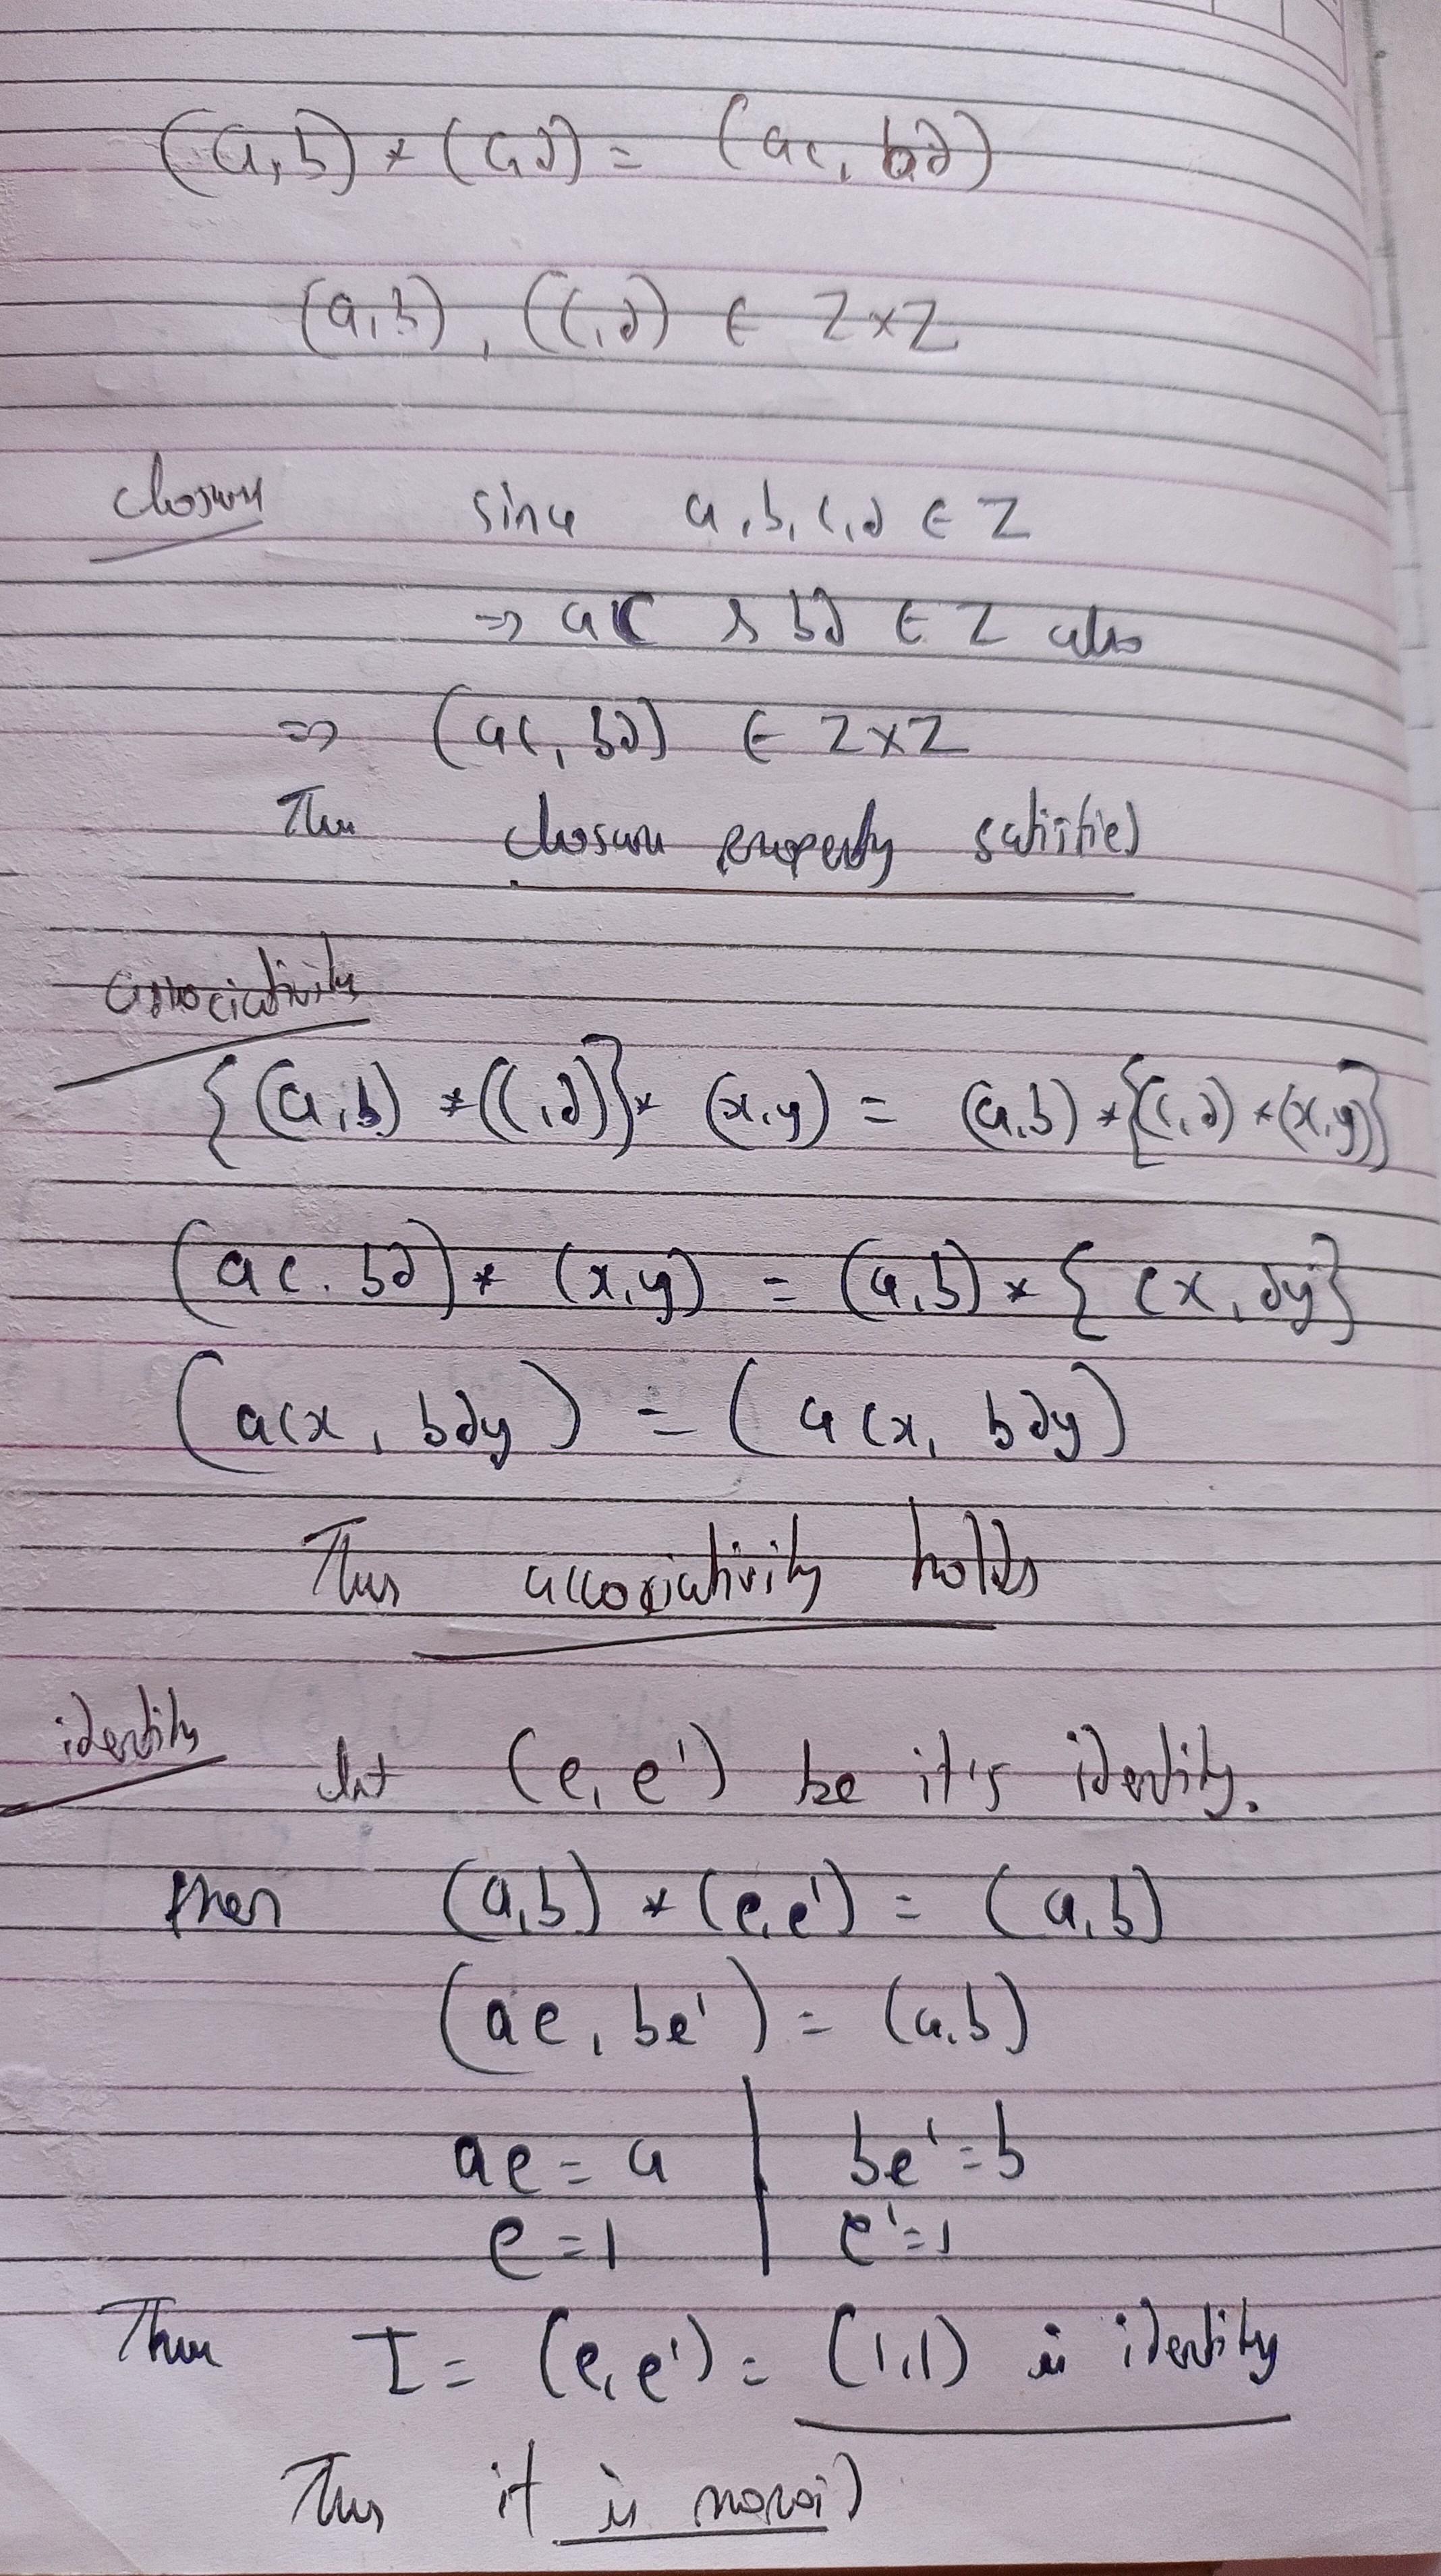 (a,b) * (c,d) = (ac, bd)
(a,b), (c,d) ∈ Z×Z
closure since a,b,c,d ∈ Z
⇒ ac & bd ∈ Z also
⇒ (ac, bd) ∈ Z×Z
Thus closure property satisfies
associativity
{(a,b) *(c,d)}* (x,y) = (a,b) *{(c,d) *(x,y)}
(ac. bd) * (x,y) = (a,b) * { cx, dy}
(acx, bdy) = (acx, bdy)
Thus associativity holds
identity let (e, e') be it's identity.
then (a,b) * (e,e') = (a,b)
(ae, be') = (a,b)
ae = a | be' = b
e = 1 | e' = 1
Thus I = (e,e') = (1,1) is identity
Thus it is monoid